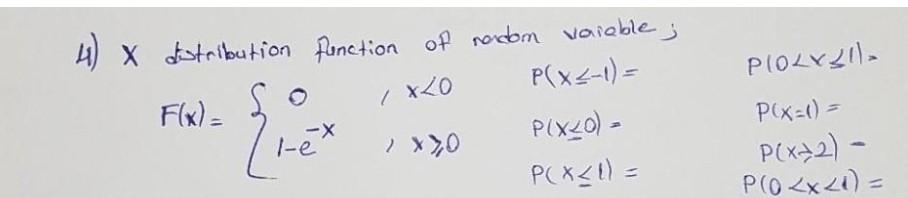 4) X distribution function of random variable;
F(x) = { 0 , x<0
1-e^-x , x≥0
P(x≤-1) =
P(x≤0) =
P(x≤1) =
P(0<x≤1) =
P(x=1) =
P(x≥2) =
P(0<x<1) =